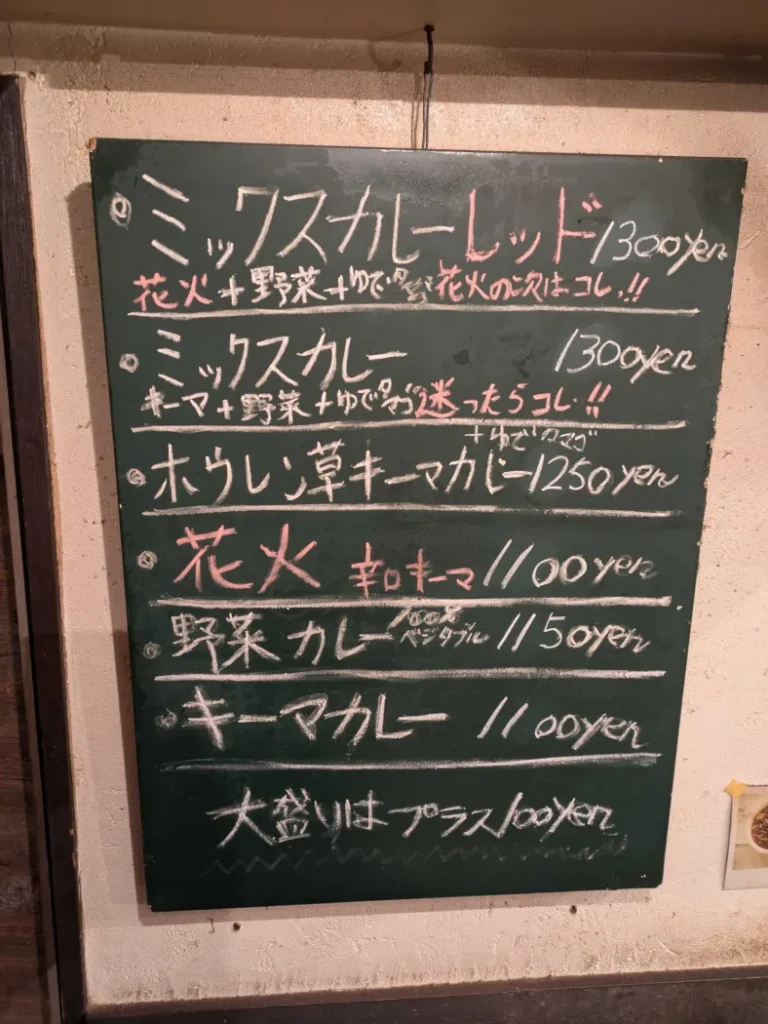 ミックスカレーレッド1300yen
花火+野菜+ゆでタマゴ 花火の次はコレ!!
ミックスカレー 1300yen
キーマ+野菜+ゆでタマゴ 迷ったらコレ!!
+ゆでタマゴ
ホウレン草キーマカレー1250yen
花火 辛口キーマ 1100yen
野菜カレー 100% ベジタブル 1150yen
キーマカレー 1100yen
大盛りはプラス100yen